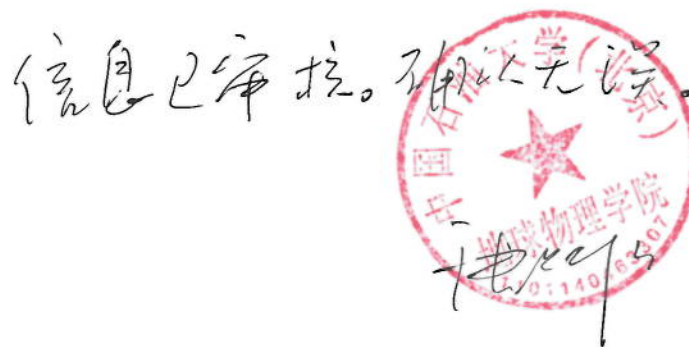 信息已审核。确认无误。
中国石油大学(北京)
地球物理学院